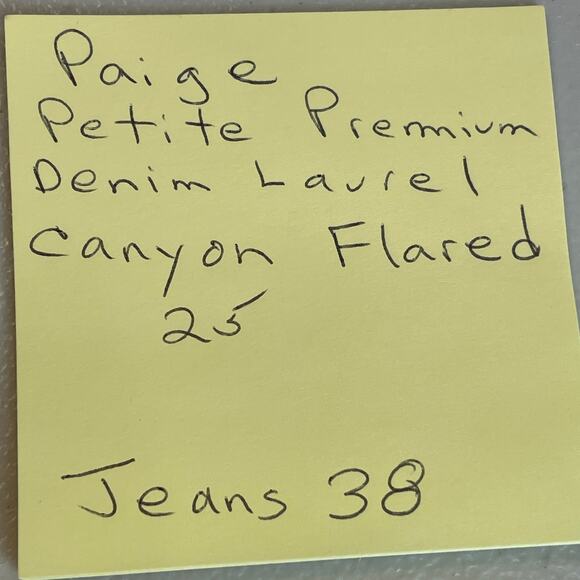 Paige
Petite Premium
Denim Laurel
Canyon Flared
25
Jeans 38